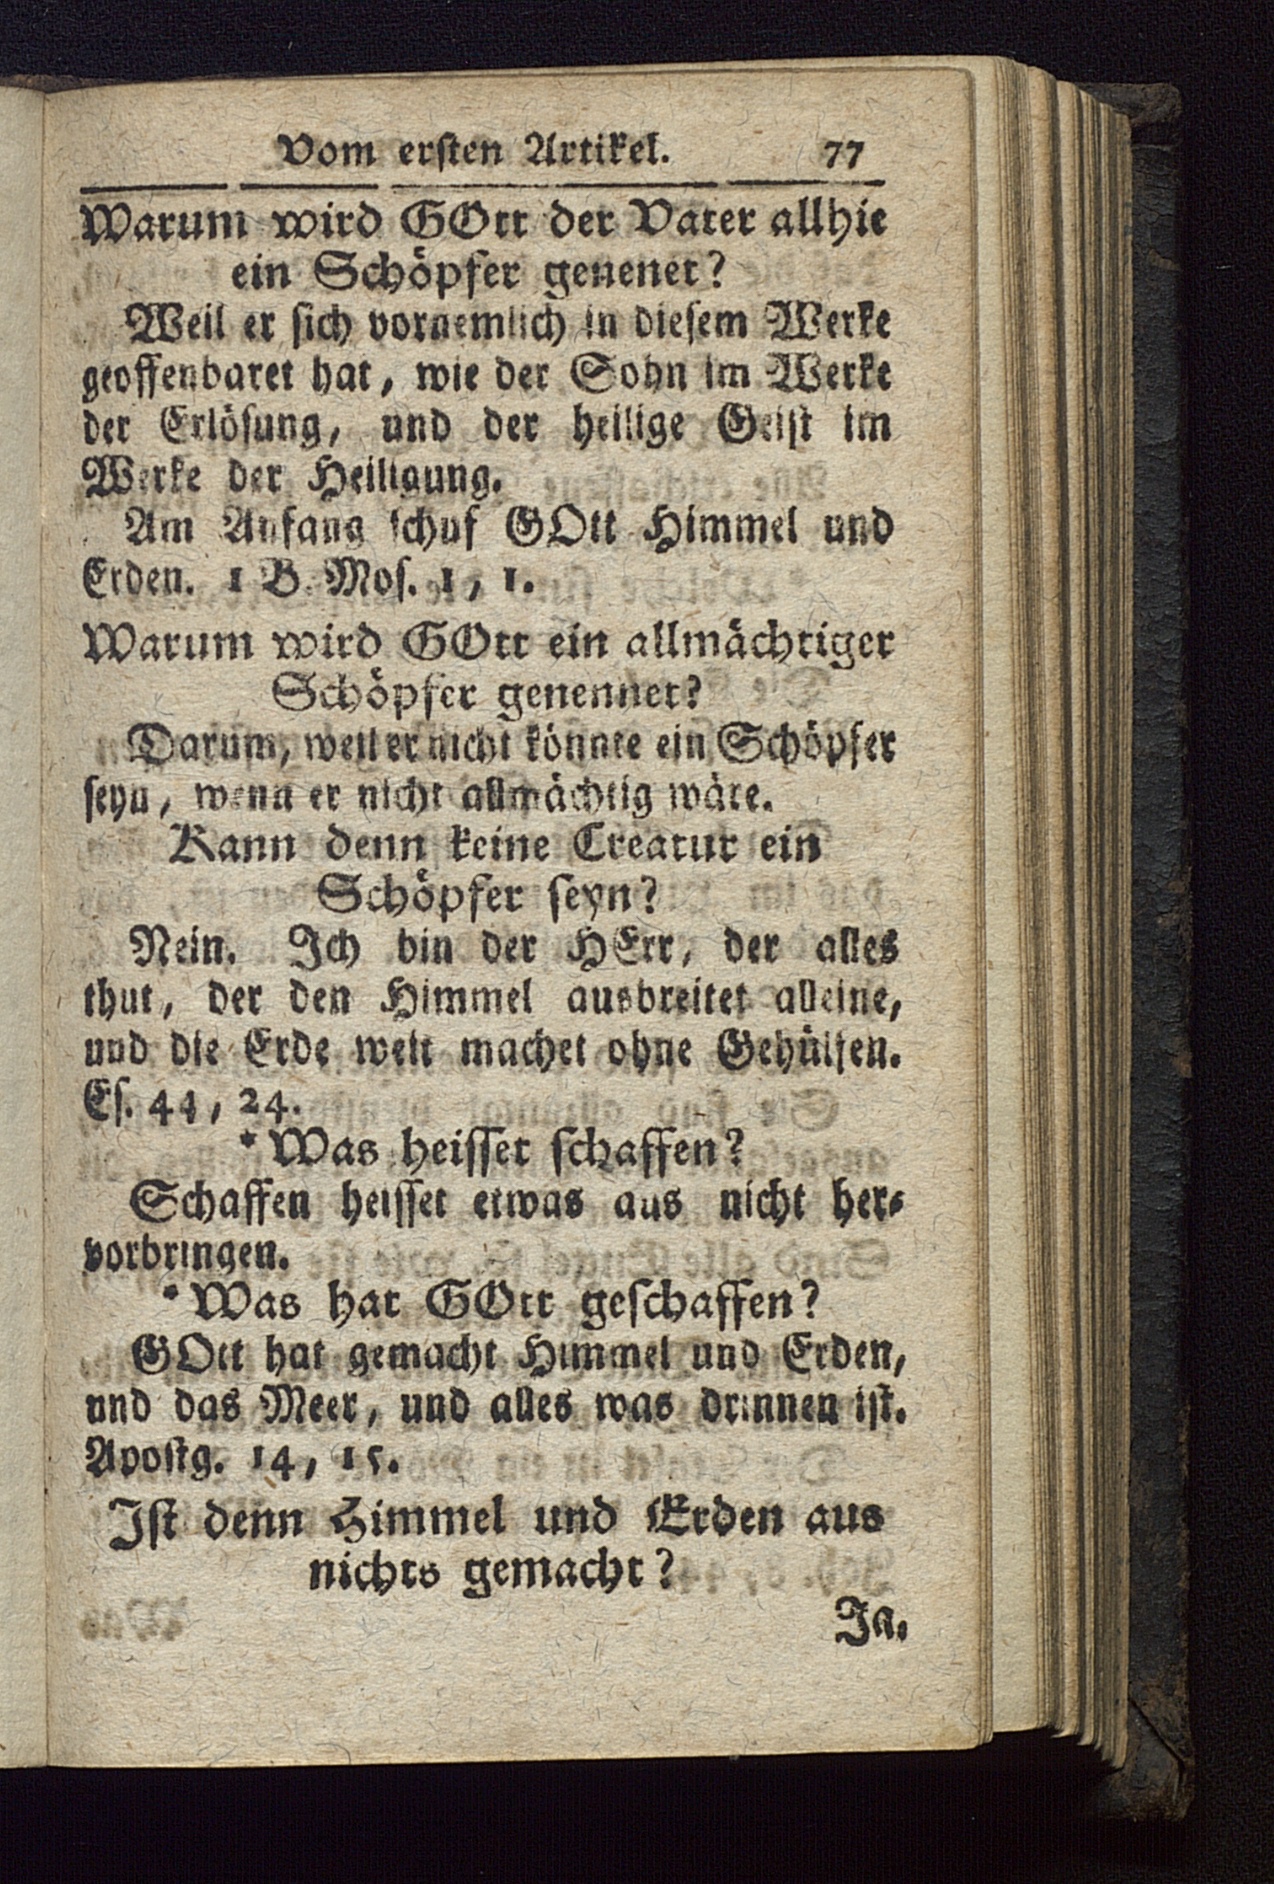 Vom ersten Artikel. 77
Warum wird GOtt der Vater allhie
ein Schöpfer genenet?
Weil er sich vornemlich in diesem Werke
geoffenbaret hat, wie der Sohn im Werke
der Erlösung, und der heilige Geist im
Werke der Heiligung.
Am Anfang schuf GOtt Himmel und
Erden. 1 B. Mos. 1, 1.
Warum wird GOtt ein allmächtiger
Schöpfer genennet?
Darum, weil er nicht könnte ein Schöpfer
seyn, wenn er nicht allmächtig wäre.
Kann denn keine Creatur ein
Schöpfer seyn?
Nein. Ich bin der HErr, der alles
thut, der den Himmel ausbreitet alleine,
und die Erde weit machet ohne Gehülfen.
Es. 44, 24.
* Was heisset schaffen?
Schaffen heisset etwas aus nicht her-
vorbringen.
* Was hat GOtt geschaffen?
GOtt hat gemacht Himmel und Erden,
und das Meer, und alles was drinnen ist.
Apostg. 14, 15.
Ist denn Himmel und Erden aus
nichts gemacht?
Ja.